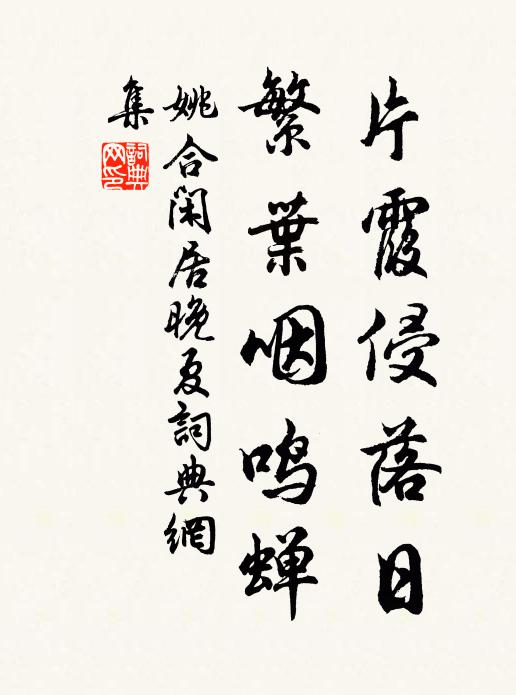 片霞侵落日
繁葉咽鸣蝉
姚合閑居晚夏詞典網
集
詞典
网印